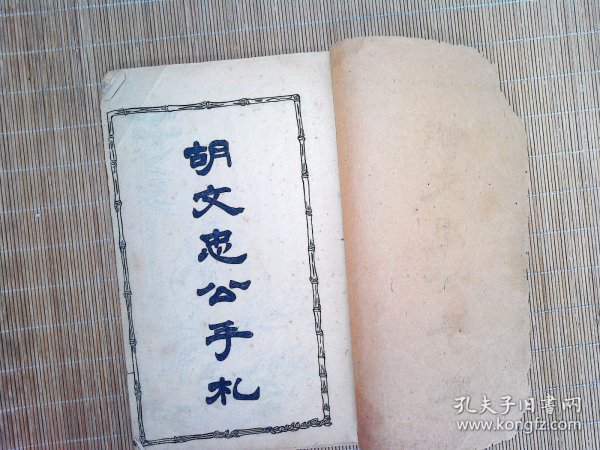 胡文忠公手札
孔夫子旧書网
www.kongfz.com